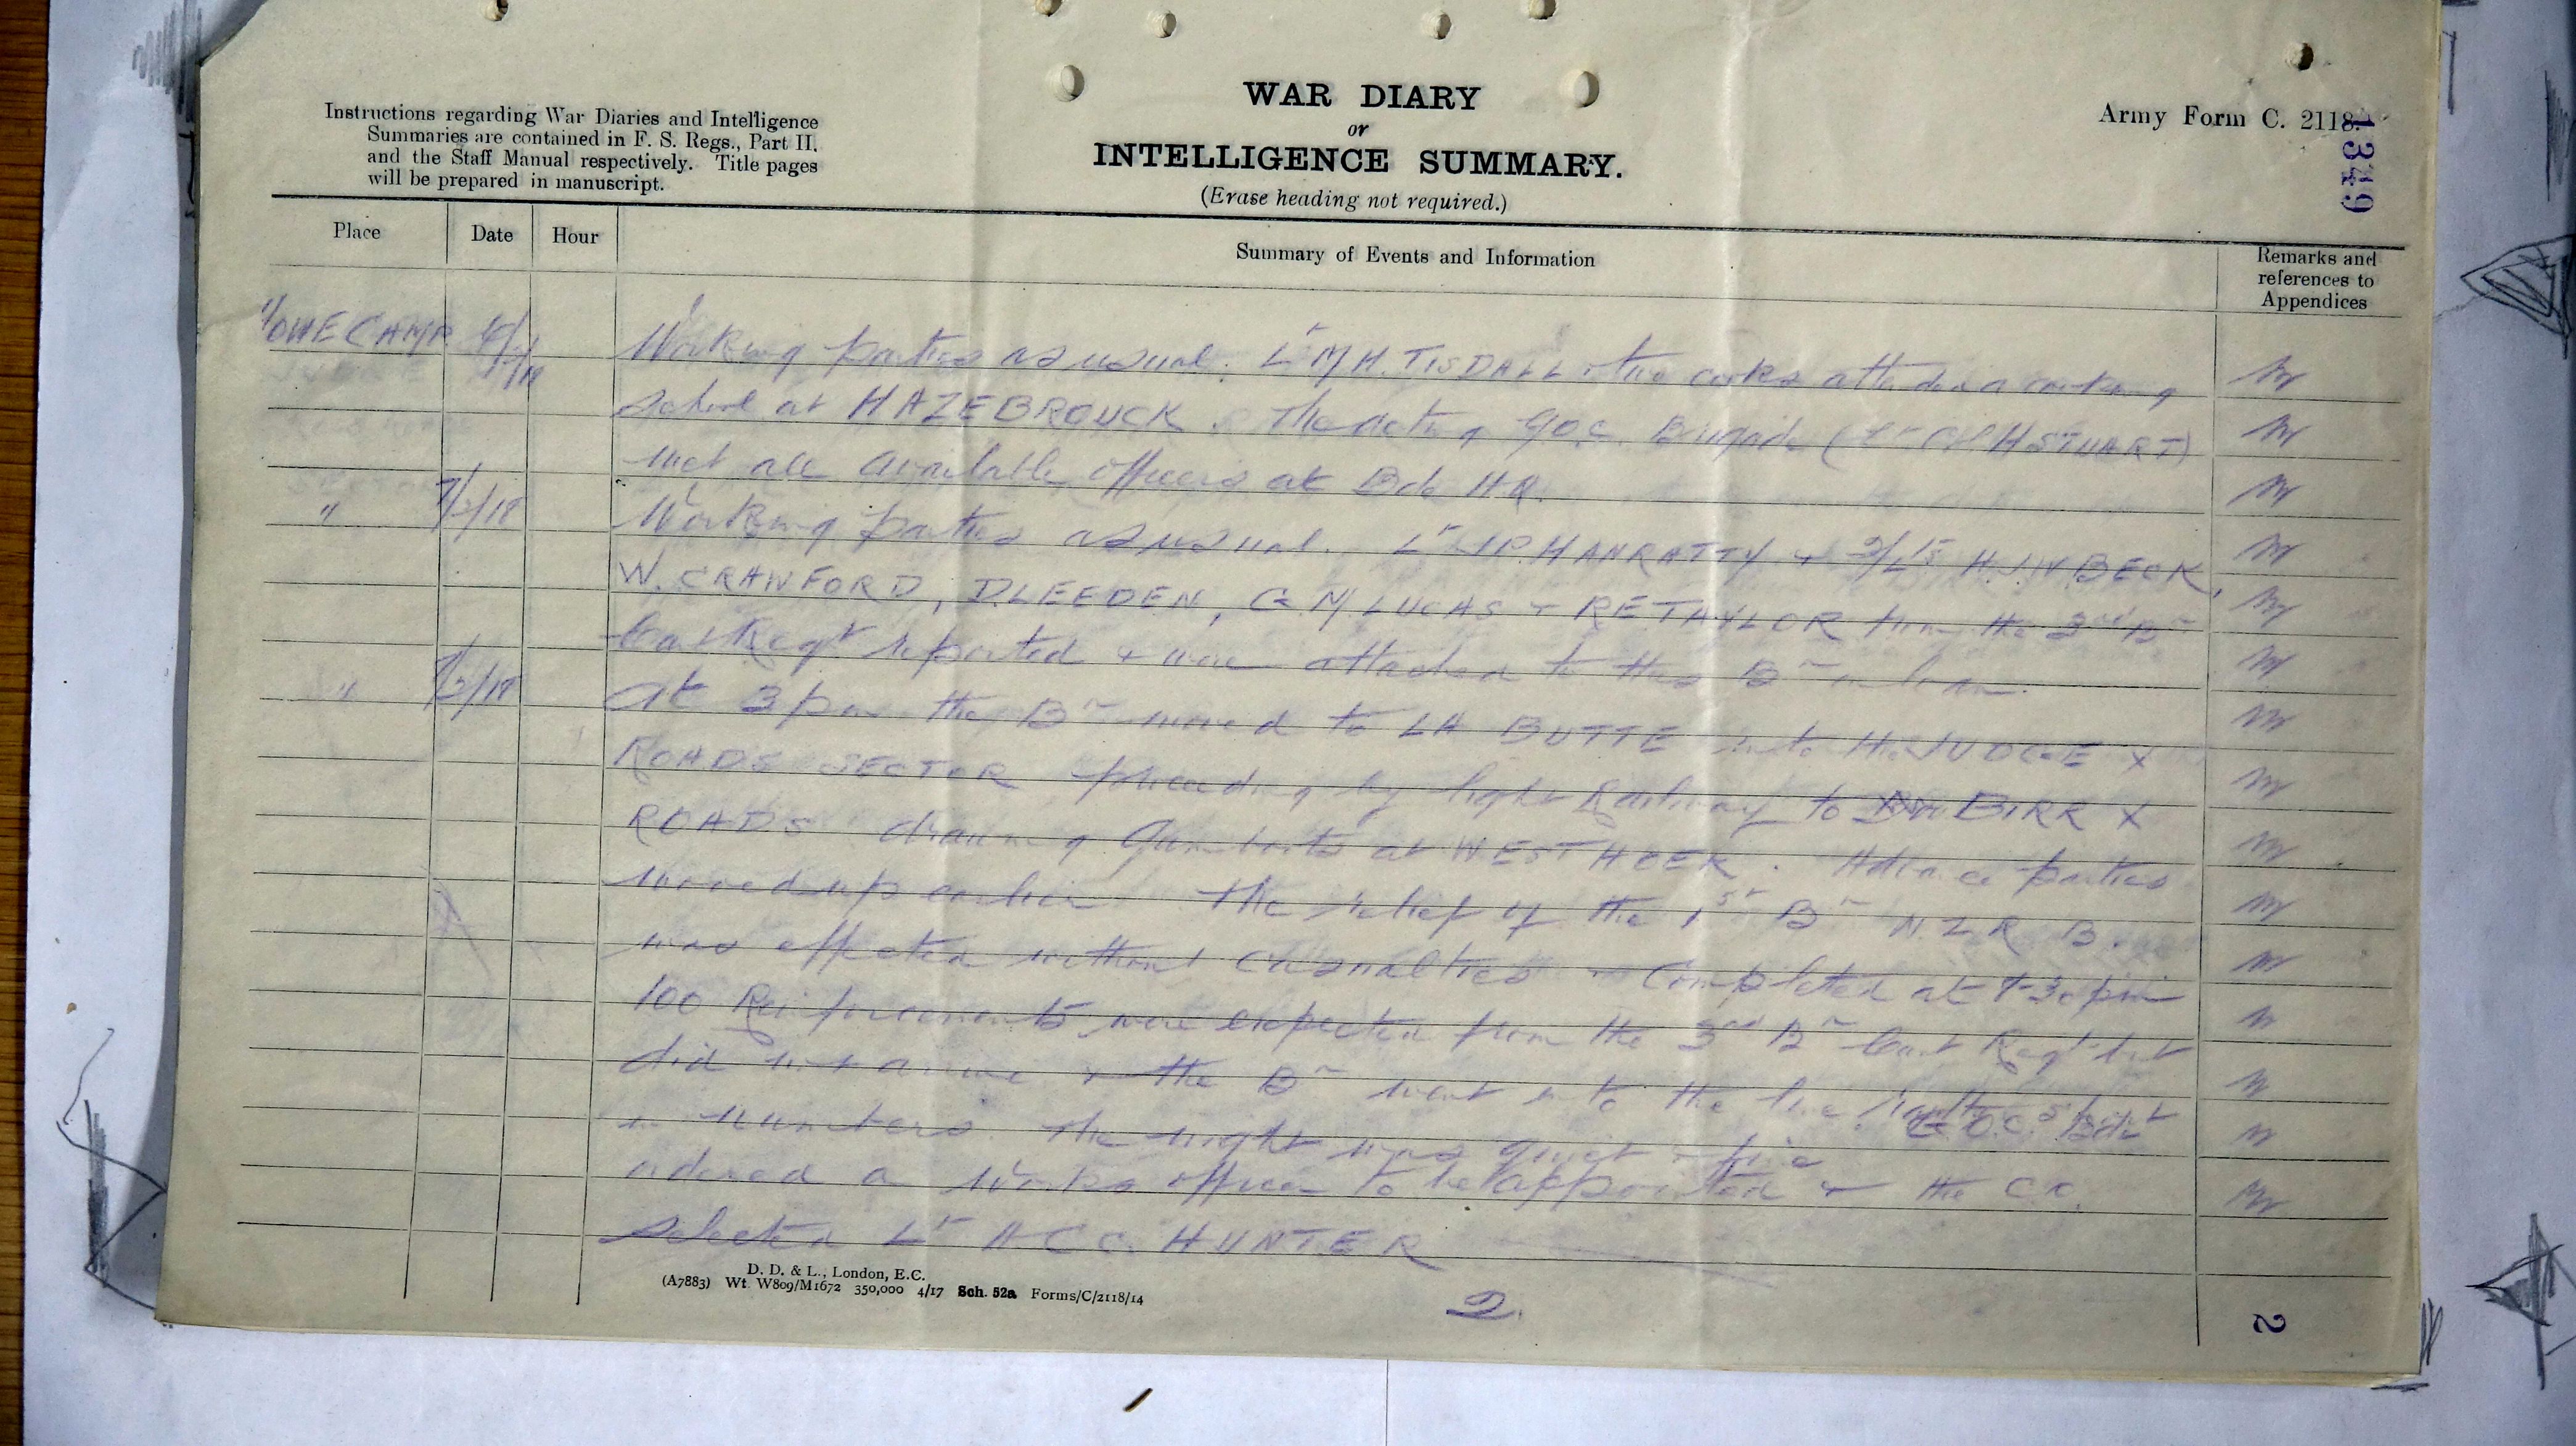 Instructions regarding War Diaries and Intelligence
Summaries are contained in F. S. Regs., Part II.
and the Staff Manual respectively. Title pages
will be prepared in manuscript.
WAR DIARY
or
INTELLIGENCE SUMMARY.
(Erase heading not required.)
Army Form C. 2118.
1349
Place
Date
Hour
Summary of Events and Information
Remarks and
references to
Appendices
HOWE CAMP
Working parties as usual. Lt M H. TISDALL & two cooks attended a cooking
school at HAZEBROUCK. The acting G.O.C. Brigade (STUART)
met all available officers at Bde HQ.
" 7/2/18 Working parties as usual. Lt J P. HANRATTY & 2/Lts H.J.W BECK,
W. CRAWFORD, D. LEEDEN, G M LUCAS & R E TAYLOR from the 3rd Bn
Cant Regt reported & were attached to this Bn on loan.
" /2/18 At 3 pm the Bn moved to LA BUTTE into the JUDGE X
ROADS SECTOR proceeding by light Railway to BIRR X
ROADS drawing Gumboots at WESTHOEK. Advance parties
moved up earlier. The relief of the 1st Bn N.Z.R.B.
was effected without casualties & completed at -30 pm
100 Reinforcements were expected from the 3rd Bn Cant Regt but
did not arrive & the Bn went into the line short
in numbers. The night was quiet & fine G.O.C.
ordered a Works officer to be appointed & the C.O.
selected Lt A C C. HUNTER
D. D. & L., London, E.C.
(A7883) Wt. W809/M1672 350,000 4/17 Sch. 52a Forms/C/2118/14
2.
2